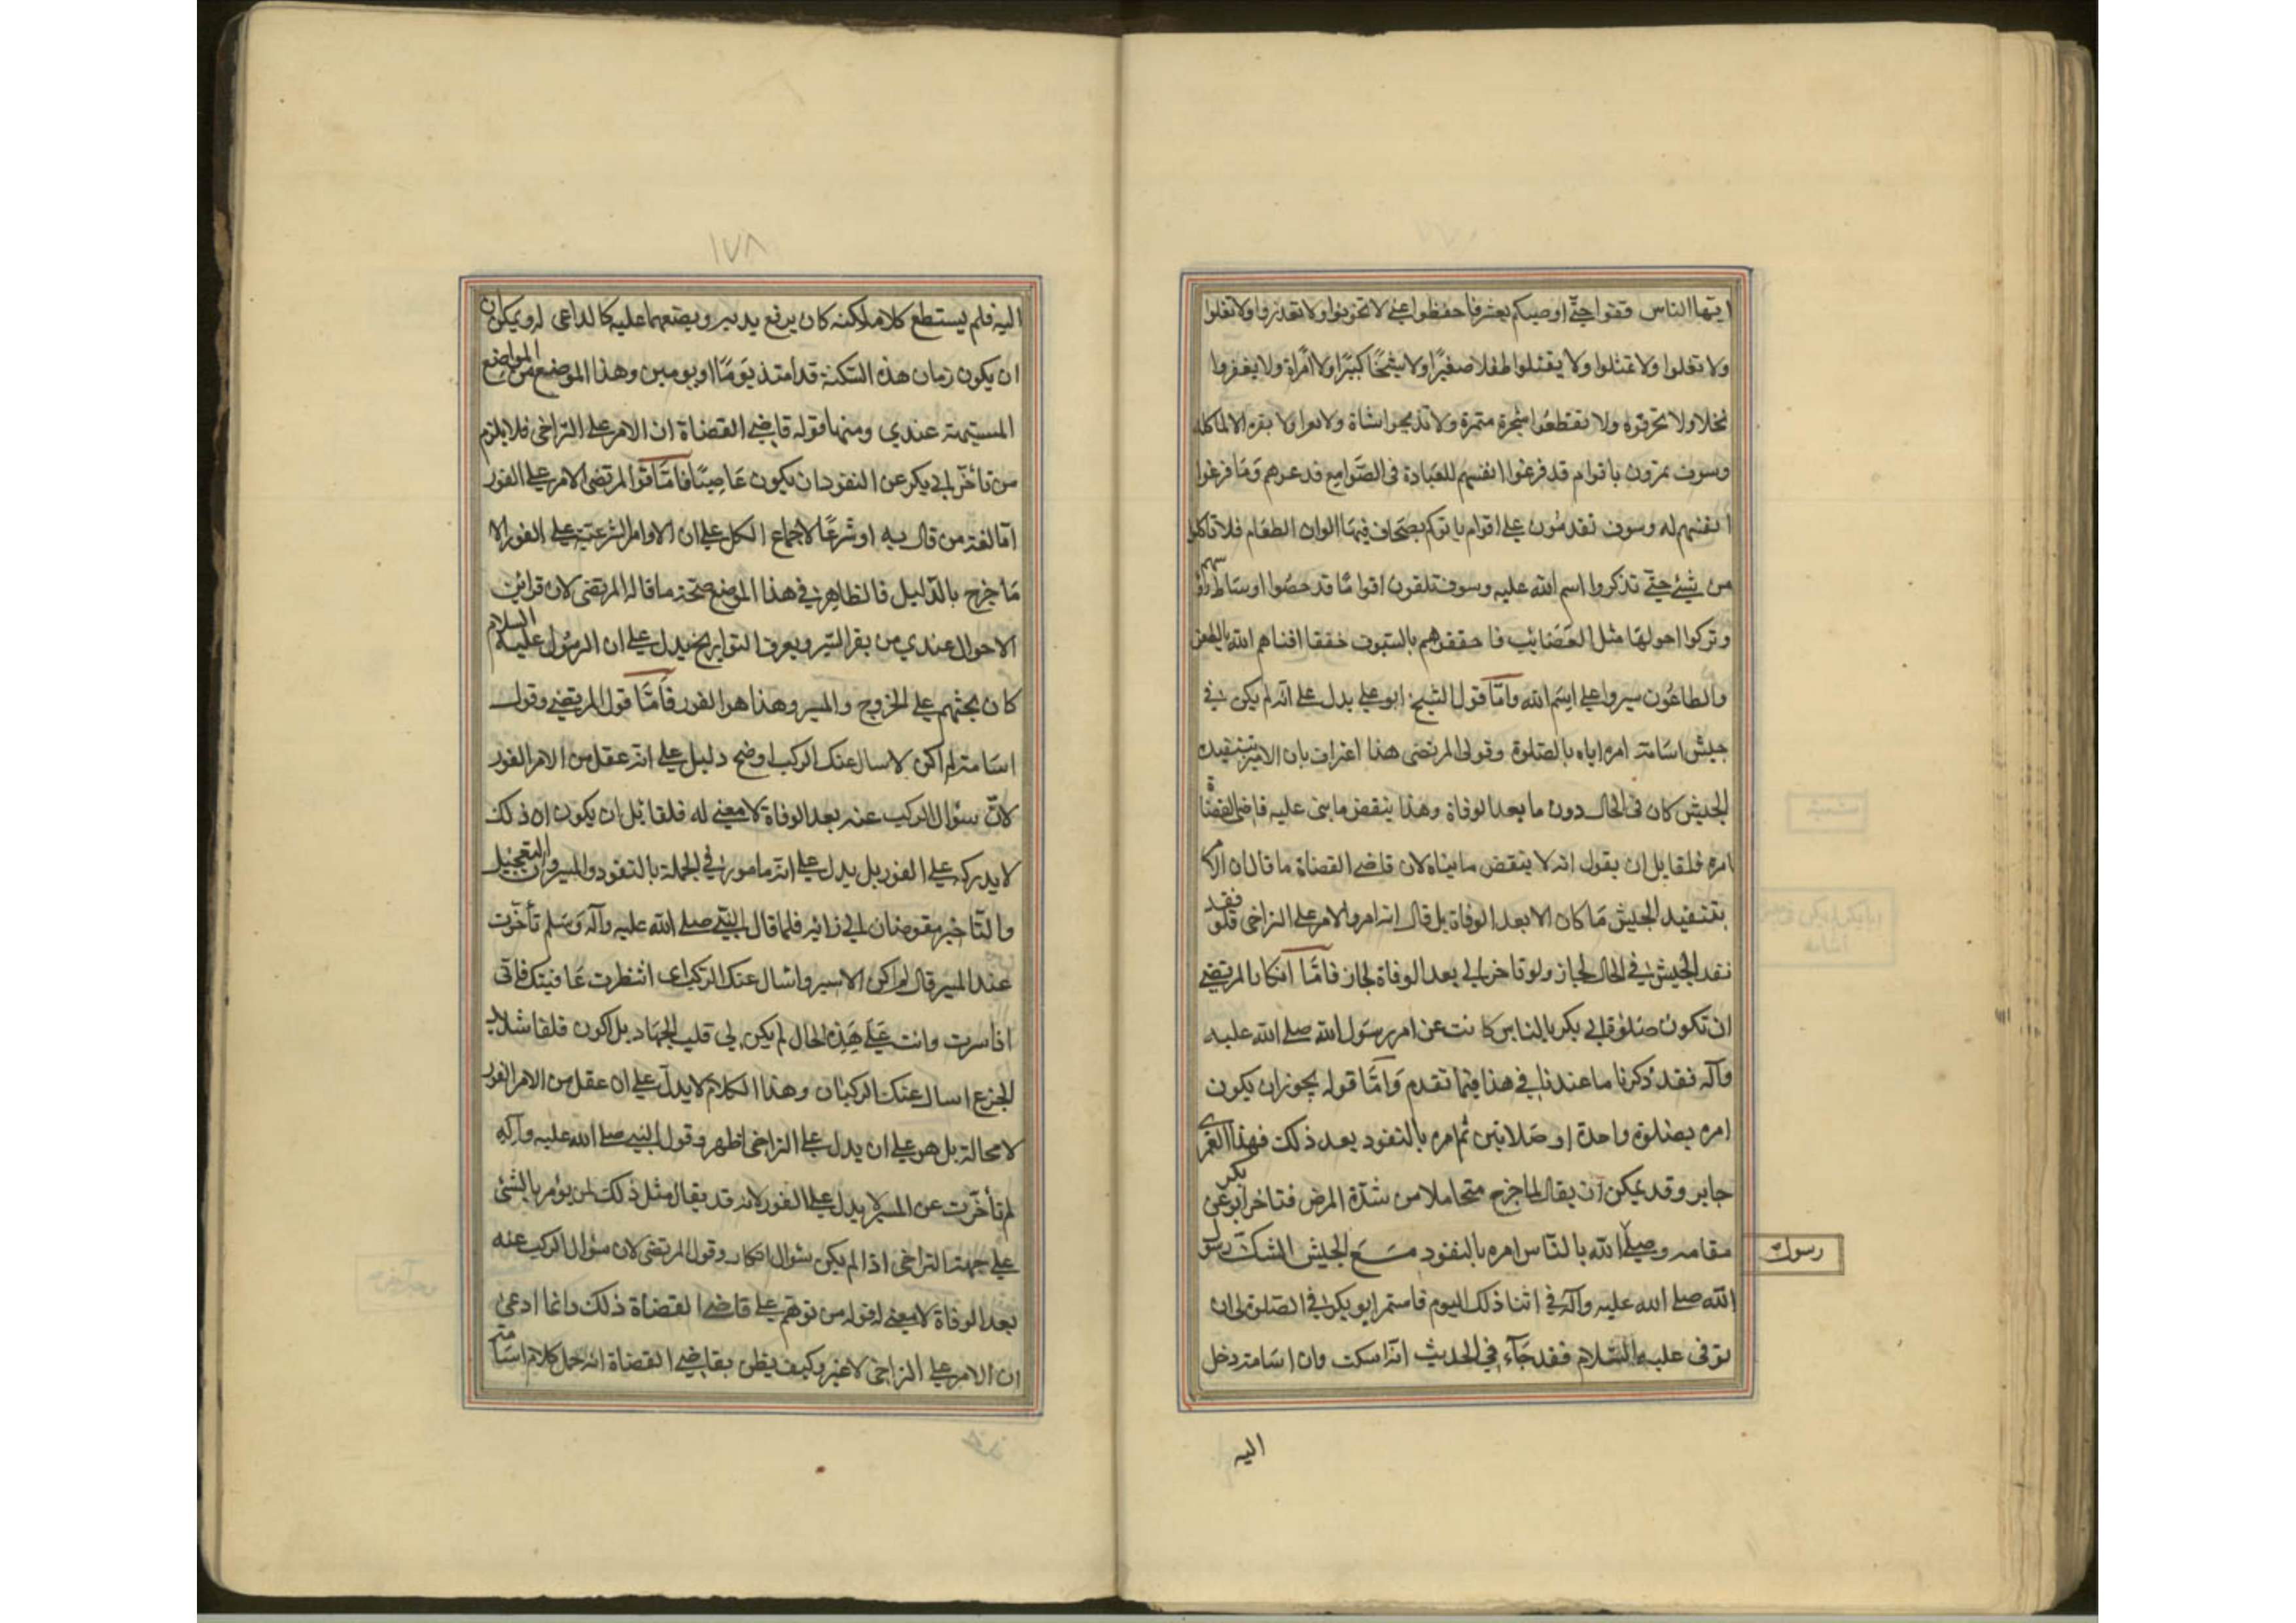 ايها الناس قفوا حتى اوصيكم بعشر فاحفظوا عني لا تخونوا ولا تغدروا ولا تغلوا
ولا تغلوا ولا تمثلوا ولا يقتلوا طفلا صغيرًا ولا شيخًا كبيرًا ولا امراة ولا يعقروا
نخلا ولا تحرقوه ولا تقطعوا شجرة مثمرة ولا تذبحوا شاة ولا بعيرا ولا بقرة الا لماكله
وسوف تمرون باقوام قد فرغوا انفسهم للعبادة في الصوامع فدعوهم وما فرغوا
انفسهم له وسوف تقدمون على اقوام ياتوكم بصحاف فيها الوان الطعام فلا تاكلوا
من شيئ حتى تذكروا اسم الله عليه وسوف تلقون اقواما قد حصوا اوساط رؤسهم
وتركوا احولها مثل العصائب فاخفقوهم بالسيوف خفقا افناهم الله بالطعن
والطاعون سيروا على اسم الله وامّا قول الشيخ ابو علي يدل على انه لم يكن في
جيش اسامة امره اياه بالصلوة وقول المرتضى هذا اعتراف بان الامر بتنفيد
الجيش كان في الحال دون ما بعد الوفاة وهذا ينقض ما بنى عليه قاضي القضاة
امره فلقايل ان يقول انه لا ينقض ما بناه لان قاضي القضاة ما قال ان الامر
بتنفيد الجيش ما كان الا بعد الوفاة بل قال انه امر والامر على التراخي فلو فقد
نفد الجيش في الحال لجاز ولو تاخر الى بعد الوفاة لجاز فامّا انكار المرتضى
ان تكون صلوة ابي بكر بالناس كانت عن امر رسول الله صلى الله عليه
وآله فقد ذكرنا ما عندنا في هذا فيما تقدم وامّا قوله يجوز ان يكون
امره بصلوة واحدة او صلاتين ثم امره بالنفود بعد ذلك فهذا لعمري
جايز وقد يمكن ان يقال لما خرج متحاملا من شدّة المرض فتاخر ابو بكر عن
مقامه وصلى الله بالناس امره بالنفود مع الجيش اشك رسول
رسول
الله صلى الله عليه وآله في اثنا ذلك اليوم فاستمر ابو بكر في الصلوة الى ان
توفى عليه السّلام فقد جآء في الحديث انه اسكت وان اسامة دخل
اليه
١٧٨
اليه فلم يستطع كلامه لكنه كان يرفع يديه ويضعهما عليه كالداعى له ويمكن ان
ان يكون زمان هذه السكتة قد امتد يومًا او يومين وهذا الموضع من المواضع
المشتبهة عندي ومنها قوله قاضي القضاة ان الامر على التراخى فلا يلزم
من تأخر ابي بكر عن النفود ان يكون عاصيًا فامّا قول المرتضى الامر على الفور
امّا لغة من قال به او شرعًا لاجماع الكل على ان الاوامر الشرعيّة على الفور الا
ما خرج بالدّليل فالظاهر في هذا الموضع صحّة ما قاله المرتضى لان قرائن
الاحوال عندي من يقرا السير ويعرف التواريخ يدل على ان الرسول عليه السلام
كان يحثهم على الخروج والمسير وهذا هو الفور فامّا قول المرتضى وقول
اسامة لم اكن لاسال عنك الركب اوضح دليل على انه عقل من الامر الفور
لانّ سؤال الركب عنه بعد الوفاة لا معنى له فلقائل ان يكون ان ذلك
لا يدركه على الفور بل يدل على انه مامور في الجملة بالنفود والمسير وان التعجيل
والتاخير مفوضان الى رائيه فلما قال النبي صلى الله عليه وآله وسلم تأخرت
عند المسير قال لم اكن لاسير واسال عنك الركب اى انتظرت عافيتك فانى
اذا سرت وانت على هذه الحال لم يكن لى قلب الجهاد بل اكون قلقا شديد
الجزع اسال عنك الركبان وهذا الكلام لا يدلّ على ان عقل من الامر الفور
لا محالة بل هو على ان يدل على التراخى اظهر وقول النبي صلى الله عليه وآله
لم تأخرت عن المسير لا يدل على الفور لانه قد يقال مثل ذلك لمن يؤمر بالشئ
على جهة التراخى اذا لم يكن سؤال انكار وقول المرتضى لان سؤال الركب عنه
بعد الوفاة لا معنى له قول من توهّم على قاضي القضاة ذلك وانما ادعى
ان الامر على التراخى لا غير وكيف يظن بقاضي القضاة انه حمل كلام اسامة